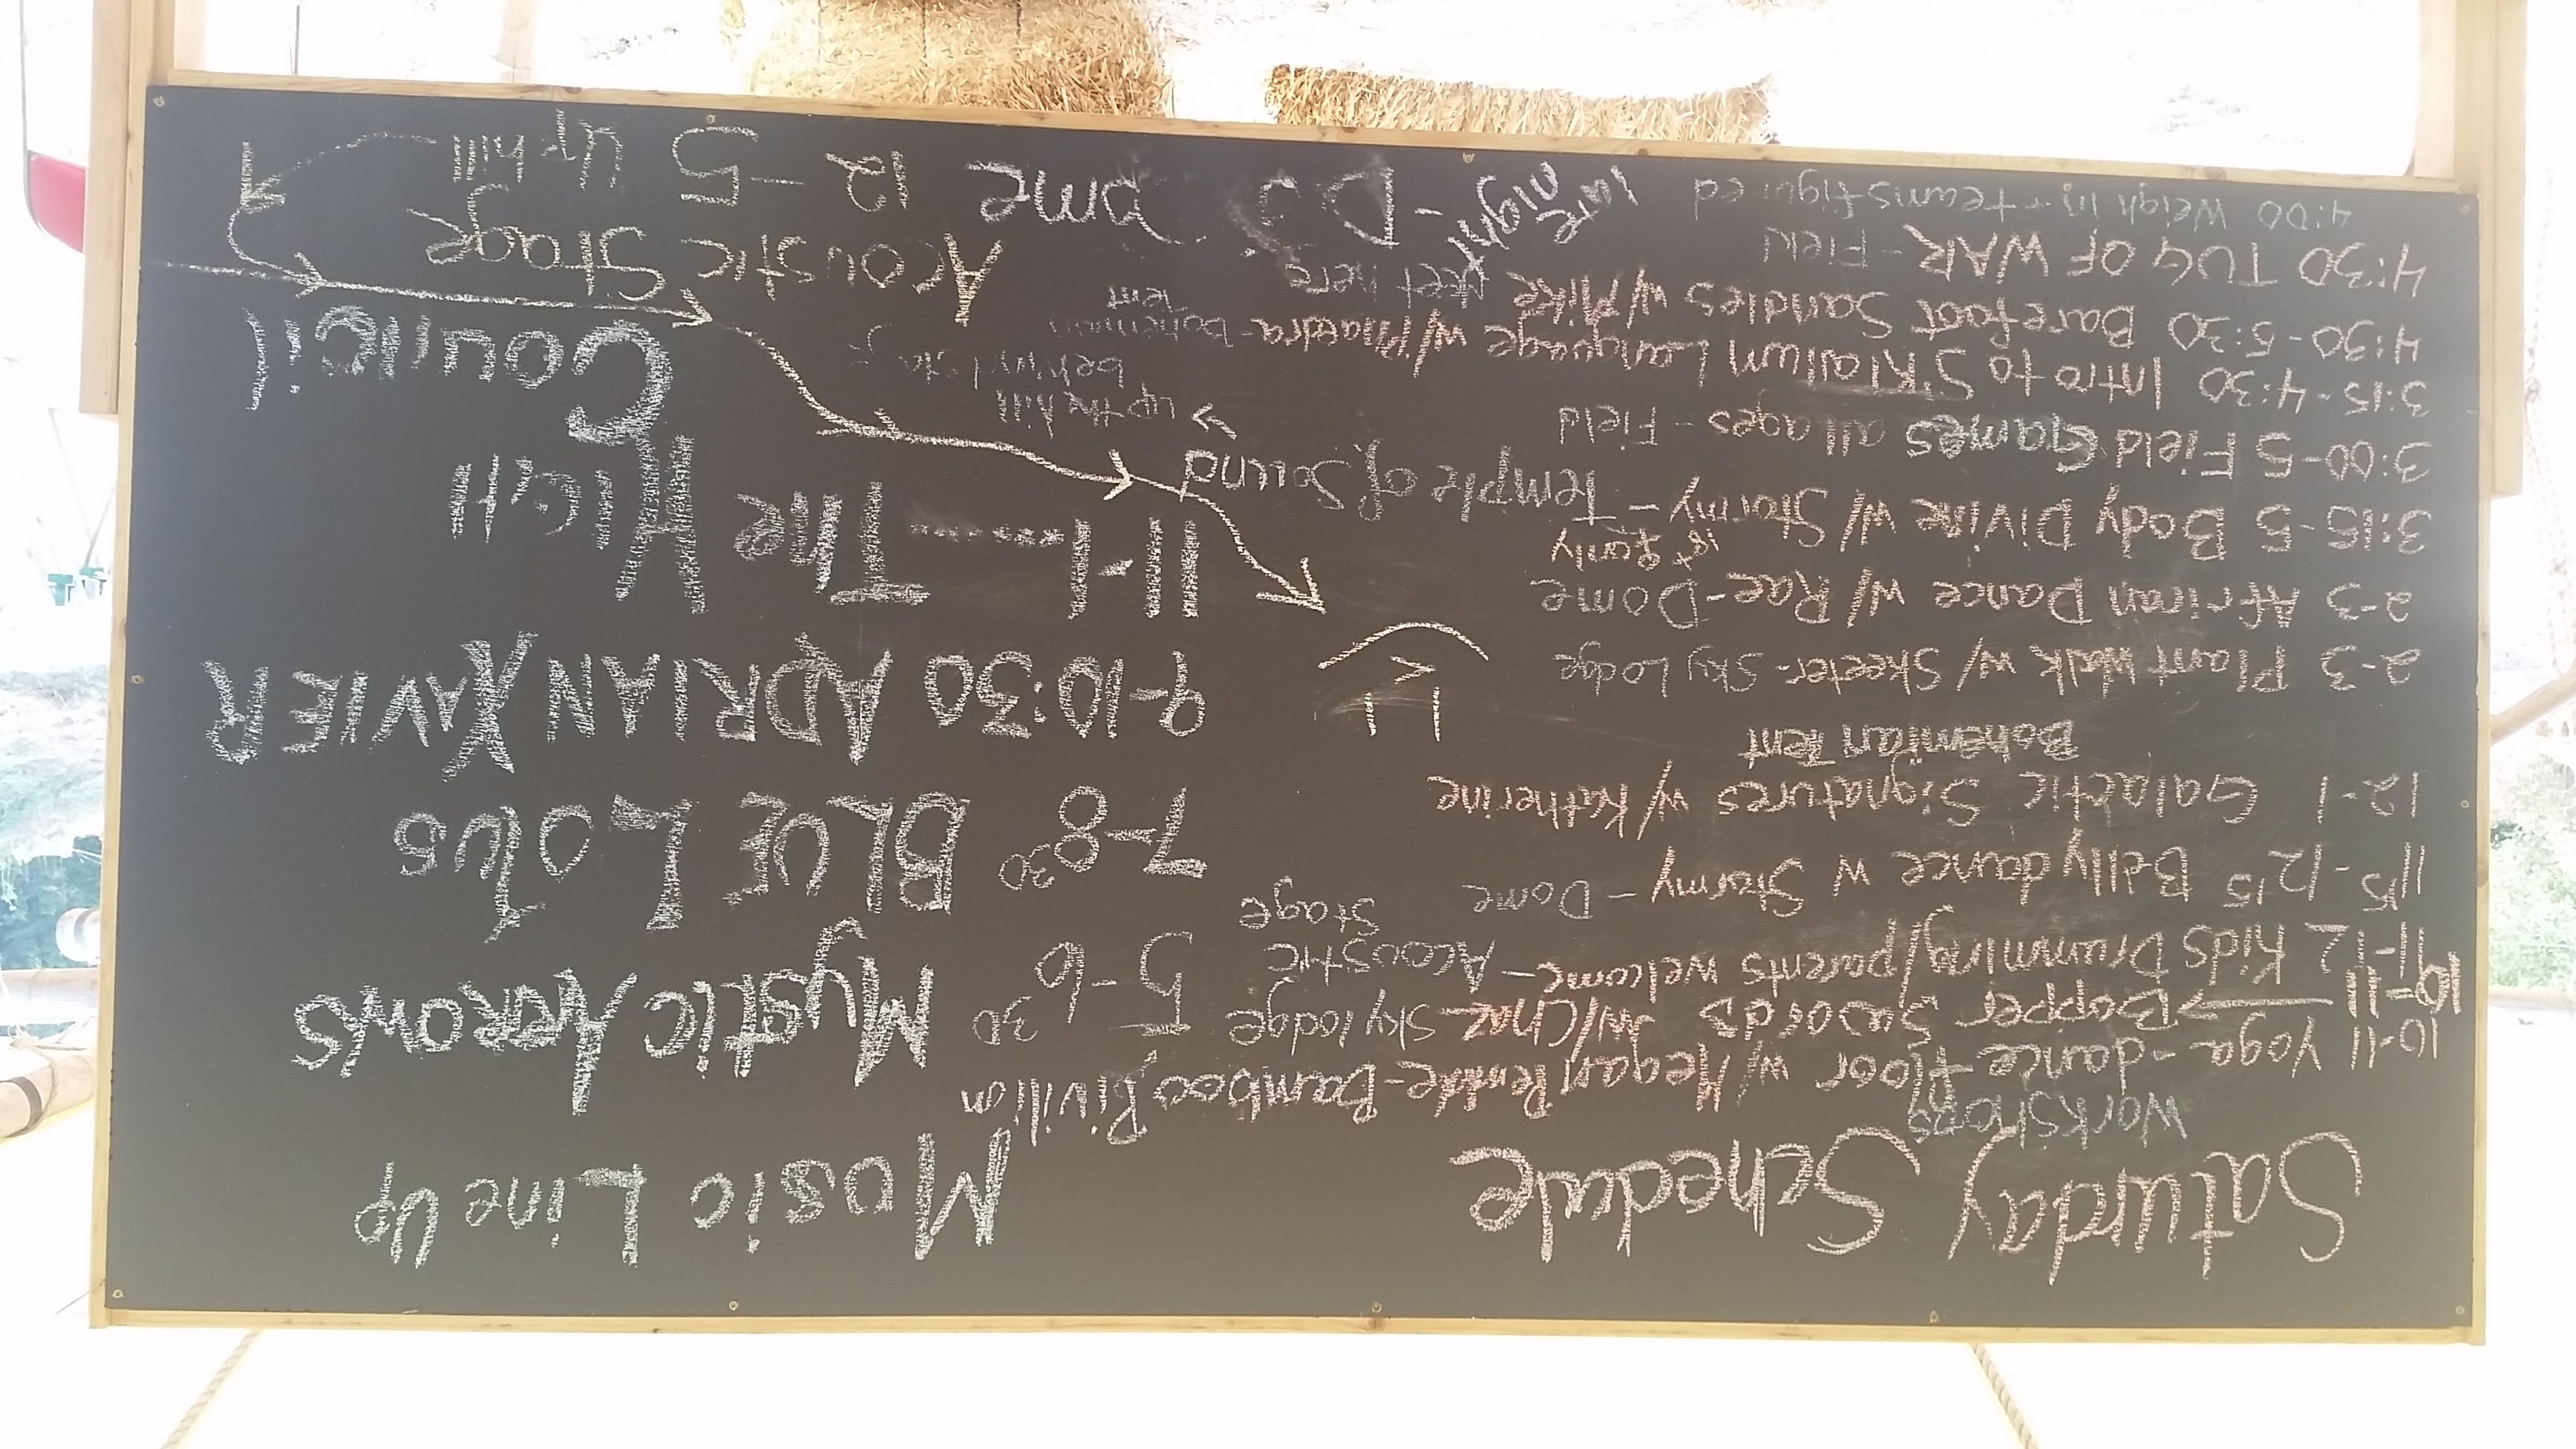 Saturday Schedule
Workshops
10-11 Yoga - dance floor w/ Megan - Bamboo Pivilion
10-11 → Bopper Swords w/ Chaz Sky lodge
11-12 Kids Drumming/parents welcome - Acoustic
Stage
11 15 - 12 15 Belly dance w Stormy - Dome
12-1 Galactic Signatures w/ Katherine
Bohemian Tent
2-3 Plant Walk w/ Skeeter - Sky Lodge
2-3 African Dance w/ Rae - Dome
18+ ♀ only
3:15-5 Body Divine w/ Stormy - Temple of Sound
→ up the hill
behind stage
3:00-5 Field Games all ages - Field
3:15-4:30 Intro to Language w/ Phaedra - Bohemian
Tent
4:30-5:30 Barefoot Sandles w/ Mike Meet here
4:30 TUG OF WAR - Field
4:00 Weigh in + teams figured
late night - DJ Dome
Music Line Up
5-6 30 Mystic Arrows
7-8 30 BLUE Lotus
9-10:30 ADRIAN XAVIER
11-1...... The HIGH
Council
Acoustic Stage
12-5 Up hill